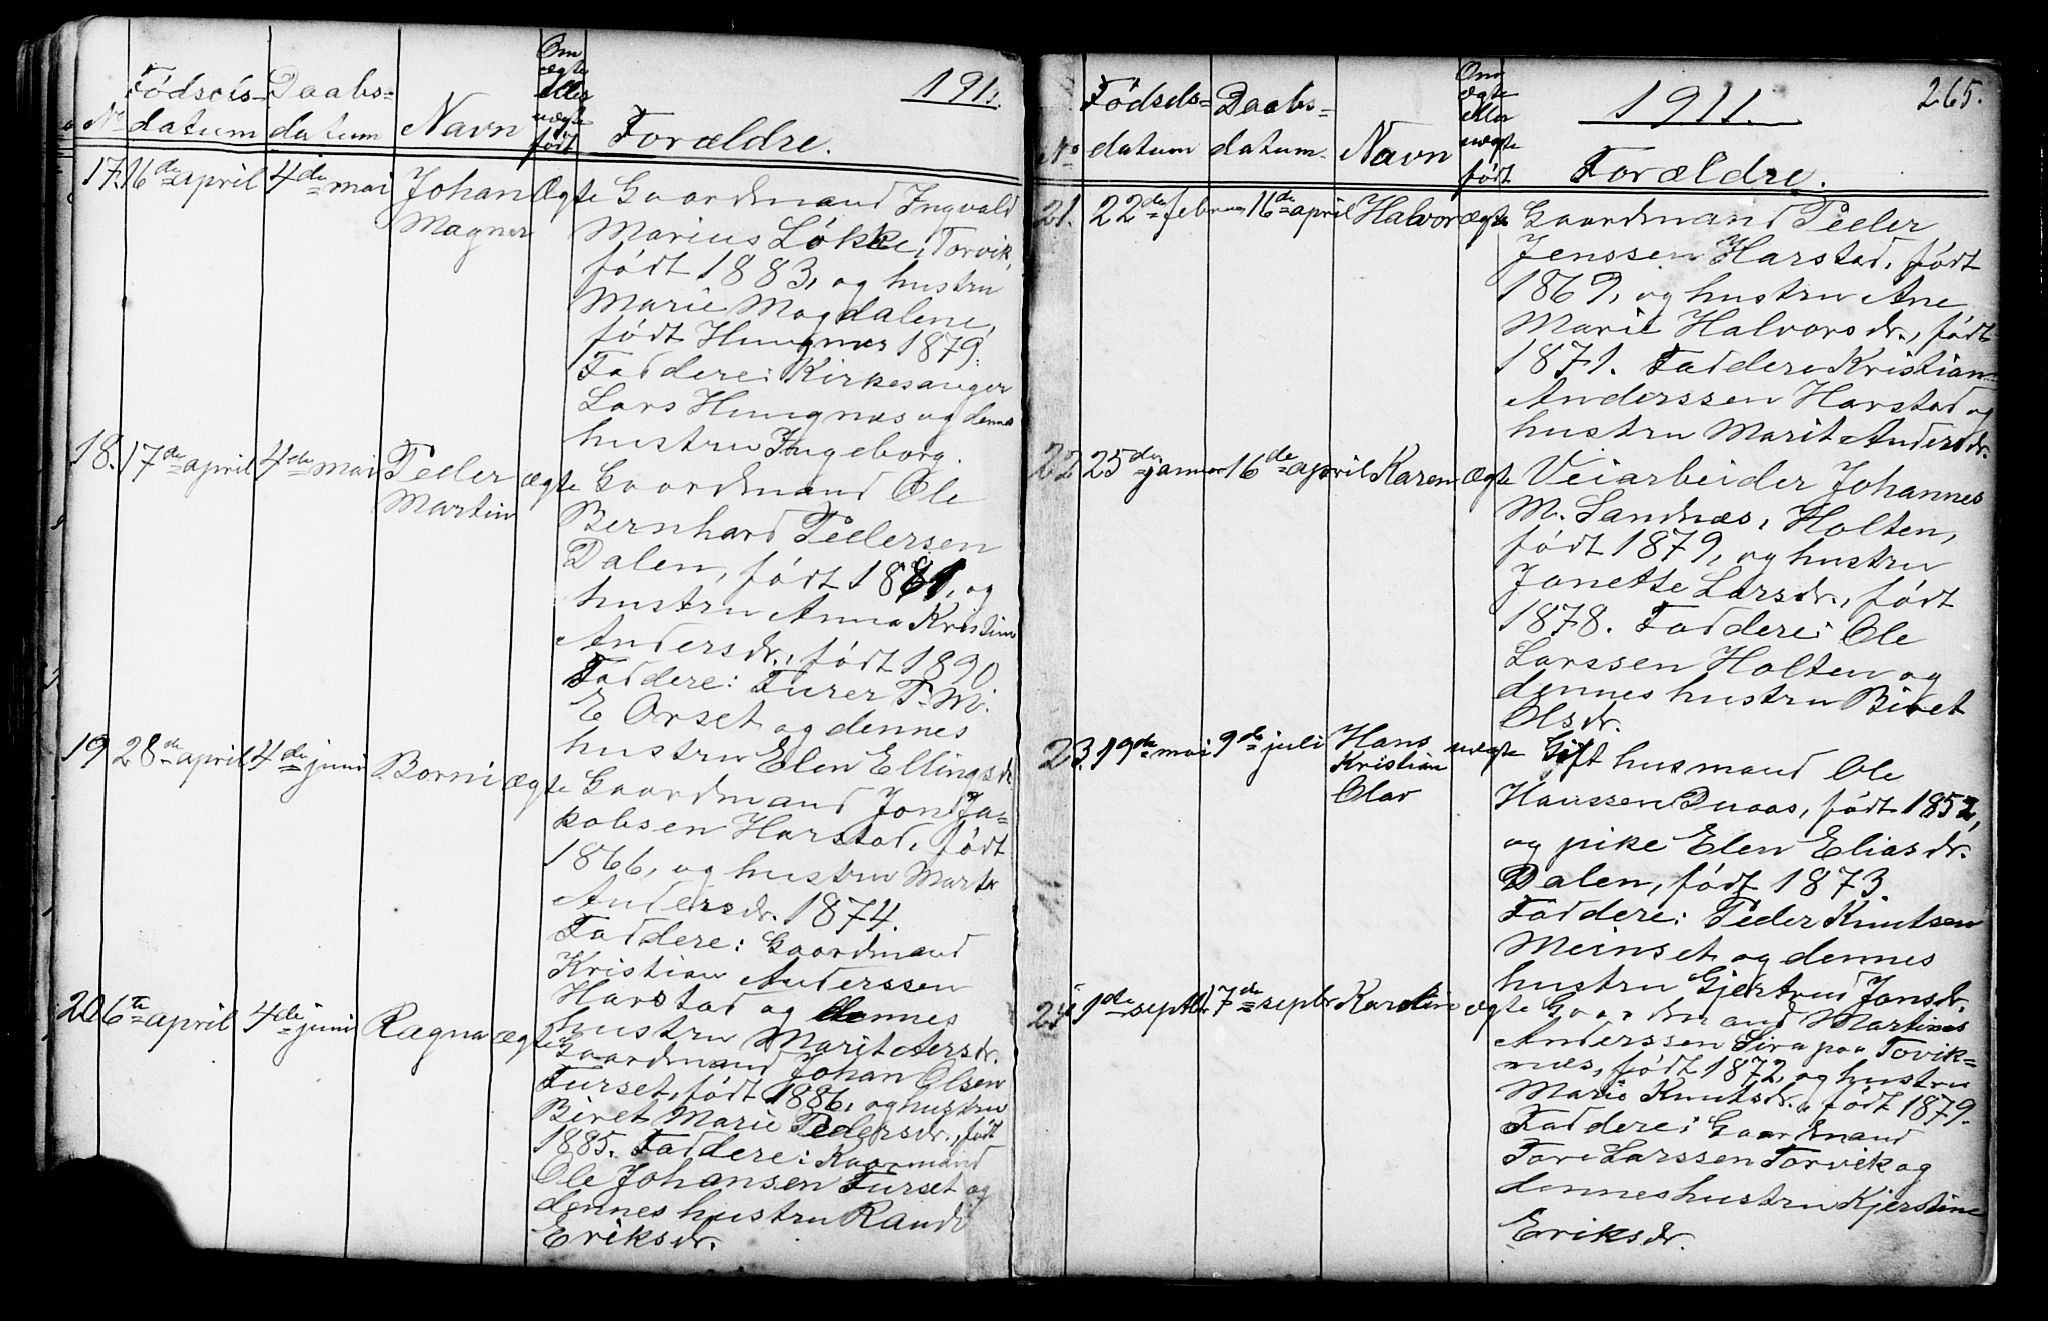 1911.
No
Fødsels=
datum
Daabs=
datum
Navn
Om
ægte
eller
uægte
født
Forældre.
17. 16de april 4de mai Johan Ægte Gaardmand Ingvald
Magnar Marius Løkke, Torvik,
født 1883, og hustru
Marie Magdalene,
født Hungnes 1879.
Faddere: Kirkesanger
Lars Hungnes og dennes
hustru Ingeborg.
18. 17de april 4de mai Peder ægte Gaardmand Ole
Martin Bernhard Pedersen
Dalen, født 1881, og
hustru Anna Kristine
Andersdr., født 1890
Faddere: Furer P. M.
E Orset og dennes
hustru Elen Ellingsdr.
19 28de april 4de juni Borni ægte Gaardmand Jon Ja=
kobsen Harstad, født
1866, og hustru Marte
Andersdr. 1874.
Faddere: Gaardmand
Kristian Anderssen
Harstad og dennes
hustru Marit Aersdr.
20 6te april 4de juni Ragna ægte Gaardmand Johan Olsen
Furset, født 1886, og hustru
Beret Marie Pedersdr., født
1885. Faddere: Kaarmand
Ole Johansen Furset og
dennes hustru Randi
Eriksdr.
265.
1911.
No
Fødsels=
datum
Daabs=
datum.
Navn
Om
ægte
eller
uægte
født
Forældre.
21. 22de februar 16de april Halvor ægte Gaardmand Peder
Jenssen Harstad, født
1869, og hustru Ane
Marie Halvorsdr., født
1871. Faddere Kristian
Anderssen Harstad og
hustru Marit Andersdr.
22 25de januar 16de april Karen Ægte Veiarbeider Johannes
M. Sandnæs, Holten,
født 1879, og hustru
Jonette Larsdr., født
1878. Faddere: Ole
Larssen Holten og
dennes hustru Beret
Olsdr.
23. 19de mai 9de juli Hans uægte Gift husmand Ole
Kristian Hanssen Duaas, født 1852,
Olav og pike Elen Eliasdr.
Dalen, født 1873
Faddere: Peder Knutsen
Meinset og dennes
hustru Gjertrud Jonsdr.
24 1de septbr 7de septbr Karoline ægte Gaardmand Martines
Anderssen Sira paa Torvik=
næs, født 1872, og hustru
Marie Knutsdr., født 1879.
Faddere: Gaardmand
Tore Larssen Torvik og
dennes hustru Kjerstine
Eriksdr.